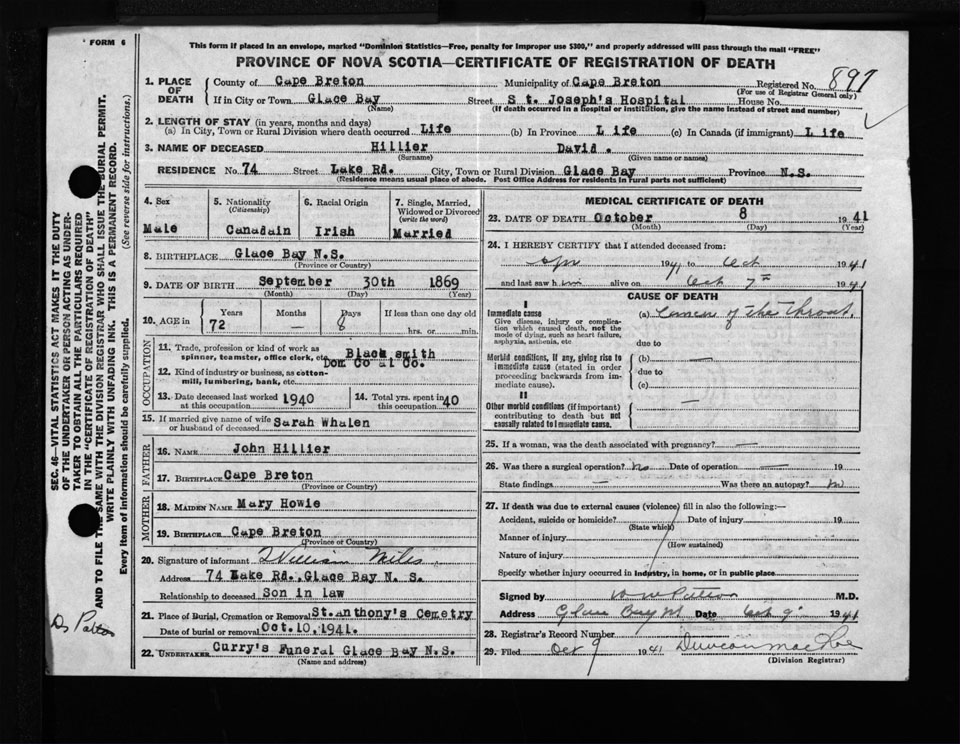 FORM 6
This form if placed in an envelope, marked "Dominion Statistics—Free, penalty for improper use $300," and properly addressed will pass through the mail "FREE"
PROVINCE OF NOVA SCOTIA—CERTIFICATE OF REGISTRATION OF DEATH
SEC. 46—VITAL STATISTICS ACT MAKES IT THE DUTY
OF THE UNDERTAKER OR PERSON ACTING AS UNDER-
TAKER TO OBTAIN ALL THE PARTICULARS REQUIRED
IN THE "CERTIFICATE OF REGISTRATION OF DEATH"
AND TO FILE THE SAME WITH THE DIVISION REGISTRAR WHO SHALL ISSUE THE BURIAL PERMIT.
WRITE PLAINLY WITH UNFADING INK. THIS IS A PERMANENT RECORD.
Every item of information should be carefully supplied. (See reverse side for instructions.)
Dr Patton
1. PLACE OF DEATH
County of Cape Breton Municipality of Cape Breton Registered No. 897
(For use of Registrar General only)
If in City or Town Glace Bay Street St. Joseph's Hospital House No.
(Name) (If death occurred in a hospital or institution, give the name instead of street and number)
2. LENGTH OF STAY (in years, months and days)
(a) In City, Town or Rural Division where death occurred Life (b) In Province Life (c) In Canada (if immigrant) Life
3. NAME OF DECEASED Hillier David.
(Surname) (Given name or names)
RESIDENCE No. 74 Street Lake Rd. City, Town or Rural Division Glace Bay Province N.S.
(Residence means usual place of abode. Post Office Address for residents in rural parts not sufficient)
4. Sex Male
5. Nationality (Citizenship) Canadain
6. Racial Origin Irish
7. Single, Married, Widowed or Divorced (write the word) Married
8. BIRTHPLACE Glace Bay N.S.
(Province or Country)
9. DATE OF BIRTH September 30th 1869
(Month) (Day) (Year)
10. AGE in Years 72 Months — Days 8 If less than one day old hrs. or min.
OCCUPATION
11. Trade, profession or kind of work as spinner, teamster, office clerk, etc. Black smith
12. Kind of industry or business, as cotton-mill, lumbering, bank, etc. Dom Coal Co.
13. Date deceased last worked at this occupation 1940
14. Total yrs. spent in this occupation 40
15. If married give name of wife or husband of deceased Sarah Whalen
FATHER
16. NAME John Hillier
17. BIRTHPLACE Cape Breton
(Province or Country)
MOTHER
18. MAIDEN NAME Mary Howie
19. BIRTHPLACE Cape Breton
(Province or Country)
20. Signature of informant William Miles
Address 74 Lake Rd. Glace Bay N. S.
Relationship to deceased Son in law
21. Place of Burial, Cremation or Removal St. anthony's Cemetry
Date of burial or removal Oct. 10, 1941.
22. UNDERTAKER Curry's Funeral Glace Bay N.S.
(Name and address)
MEDICAL CERTIFICATE OF DEATH
23. DATE OF DEATH October 8 1941
(Month) (Day) (Year)
24. I HEREBY CERTIFY that I attended deceased from:
1941 to Oct 1941
and last saw him alive on Oct 7th 1941
CAUSE OF DEATH
I
Immediate cause
Give disease, injury or complication which caused death, not the mode of dying, such as heart failure, asphyxia, asthenia, etc.
(a) Cancer of the throat.
due to
Morbid conditions, if any, giving rise to immediate cause (stated in order proceeding backwards from immediate cause).
(b) —
due to
(c)
II
Other morbid conditions (if important) contributing to death but not causally related to immediate cause. —
25. If a woman, was the death associated with pregnancy? —
26. Was there a surgical operation? no Date of operation — 19
State findings — Was there an autopsy? no
27. If death was due to external causes (violence) fill in also the following:—
Accident, suicide or homicide? Date of injury 19
(State which)
Manner of injury
(How sustained)
Nature of injury
Specify whether injury occurred in industry, in home, or in public place
Signed by Patton M.D.
Address Glace Bay Date Oct 9 1941
28. Registrar's Record Number
29. Filed Oct 9 1941 Duncan
(Division Registrar)